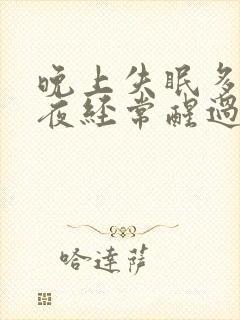 晚上失眠多
夜經常醒過
哈達薩